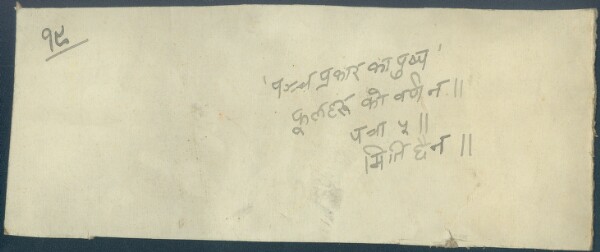 १९
'पञ्च प्रकार का पुष्प'
फूलहरु को वर्णन ॥
पत्रा ५ ॥
मिति छैन ॥